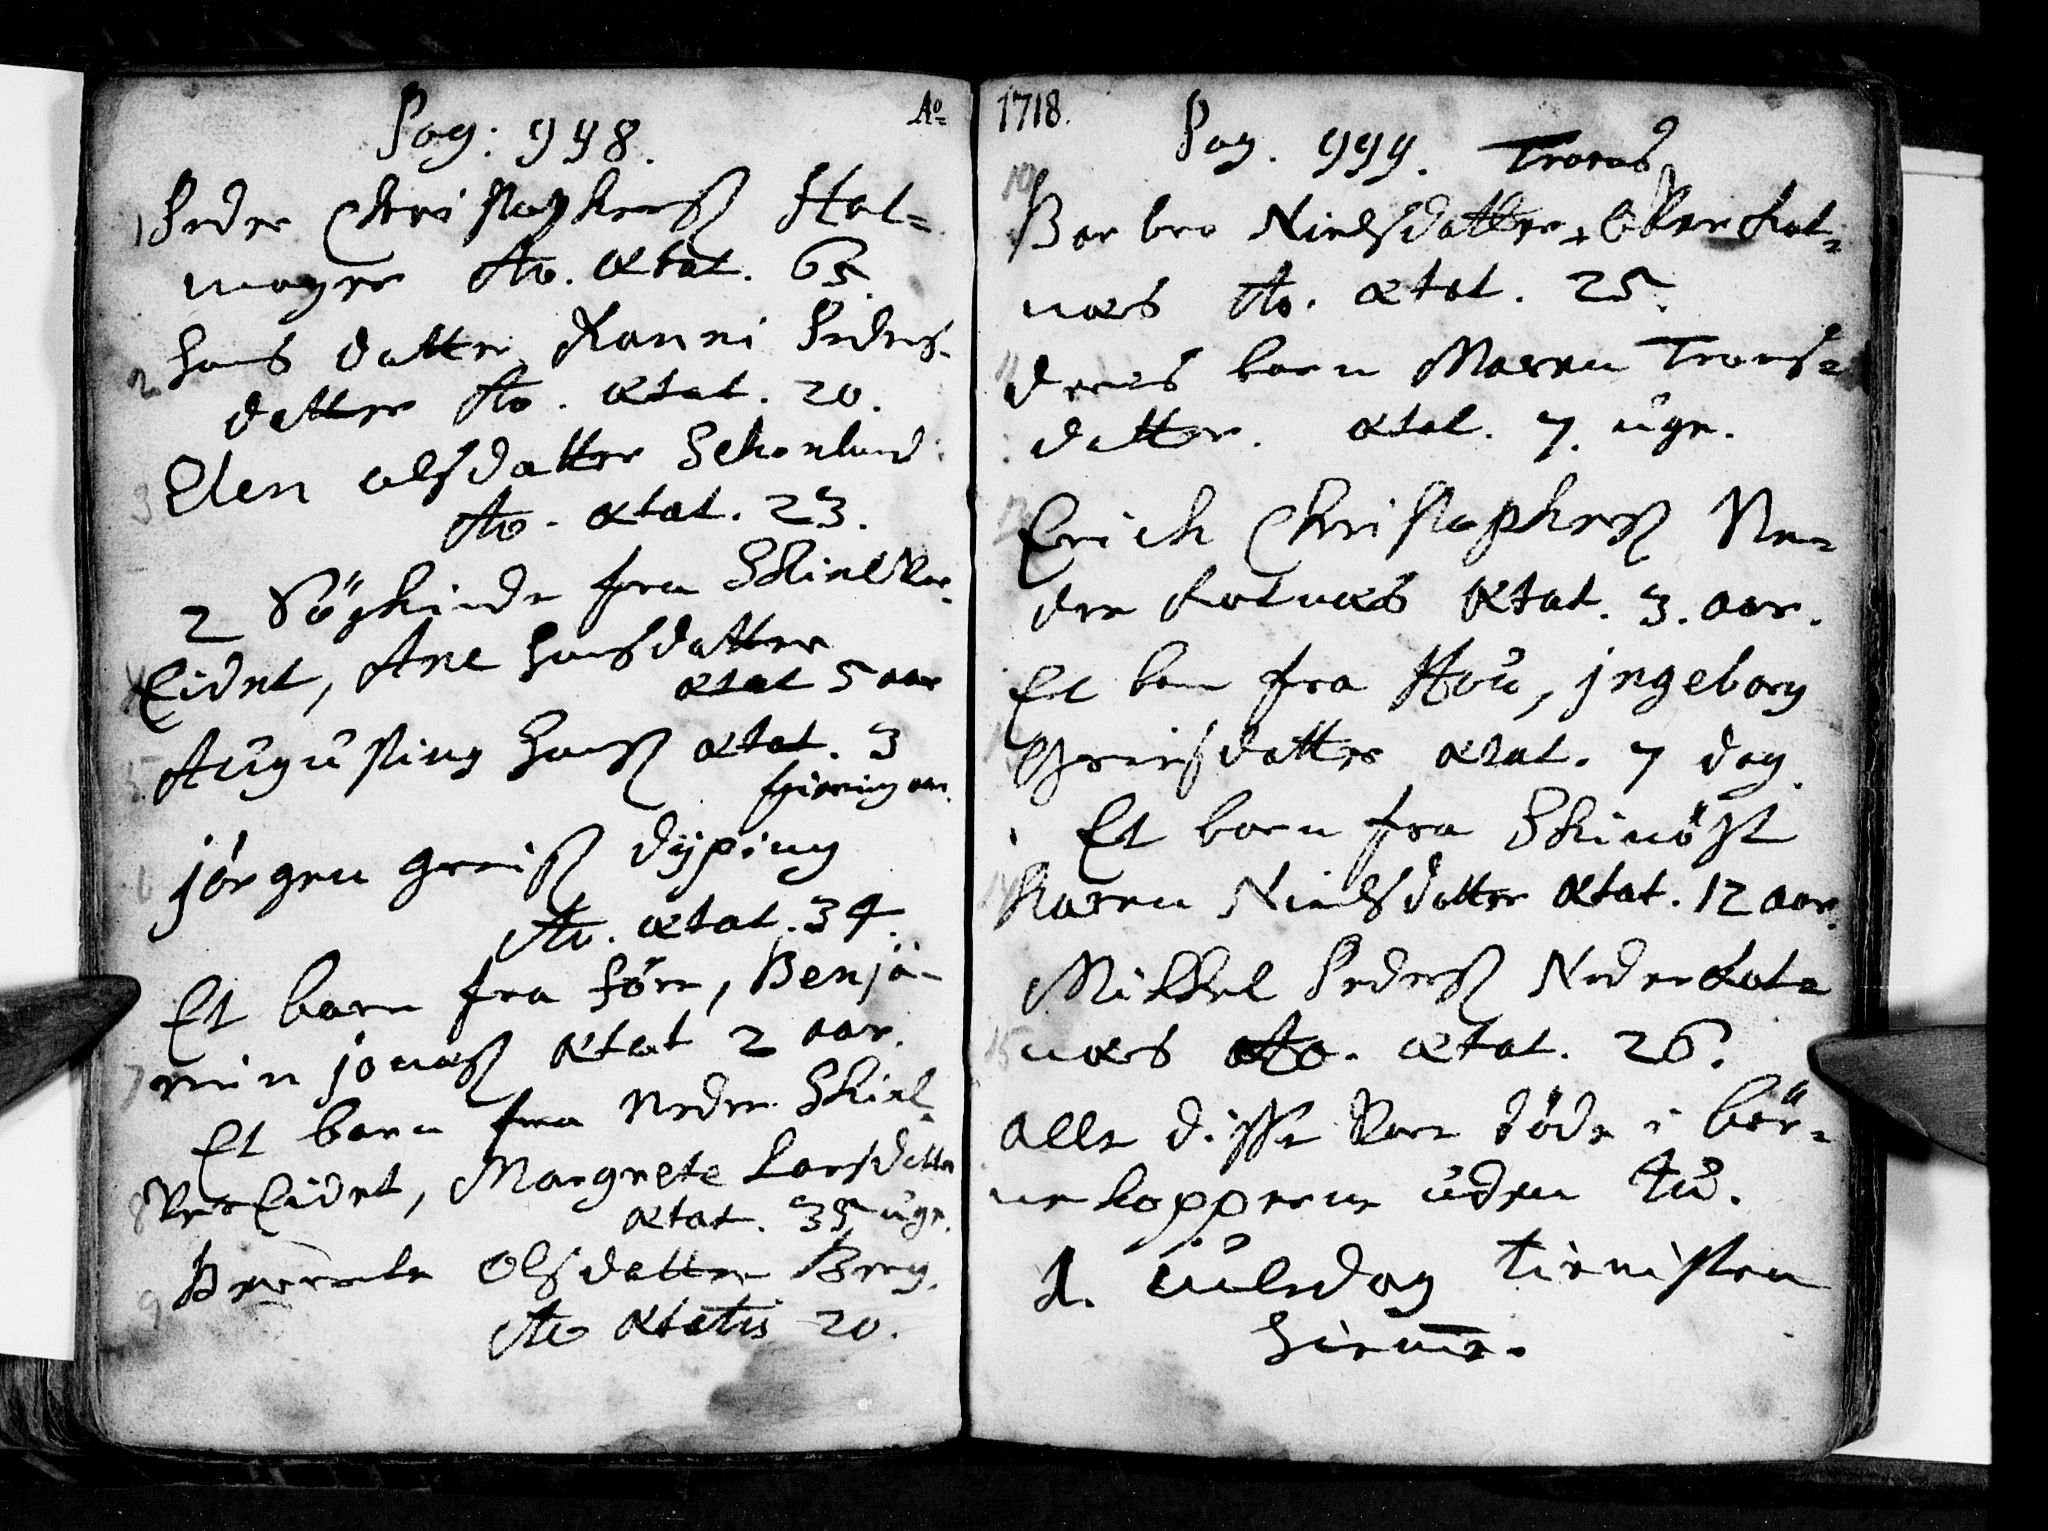 Pag: 998.
Aō
1 Peder Christophersß Hol=
mager Ao. ætat. 63.
2 hans datter Karni Peders-
datter Ao. ætat. 20.
3 Elen olsdatter Schonlund
Ao. ætat. 23.
2 Söskinde fra Skielver-
4 Eidet, Ane hansdatter
ætat 5 aar
5 Augusting hansß ætat. 3
fiering aar.
6 jörgen greisß dyping
Ao. ætat. 34.
Et barn fra före, Benja-
7 min jonæsß ætat 2 aar.
Et barn fra Neder Skiel-
8 ver Eidet, Margrete Larsdatter
ætat. 35 uger.
9 Olsdatter Berg.
Ao ætatis 20.
1718.
Pag. 999. Trones
10 Barbro Nielsdatter + över Kot=
næs Ao. ætat. 25.
11 deres barn Maren Trons=
datter. ætat. 7. uger.
12 Erich Christophersß Ne=
der Kotnæs ætat. 3. aar.
Et barn fra Hou, jngeborg
13 Greisdatter ætat. 7 dag.
Et barn fra Skinöst
14 Karen Nielsdatter ætat. 12 aar.
Mikkel Pedersß Nederkot=
15 næs Ao. ætat. 26.
alle disse vare döde i bör=
nekopperne uden tu.
1. juledag tienisten
hieme.